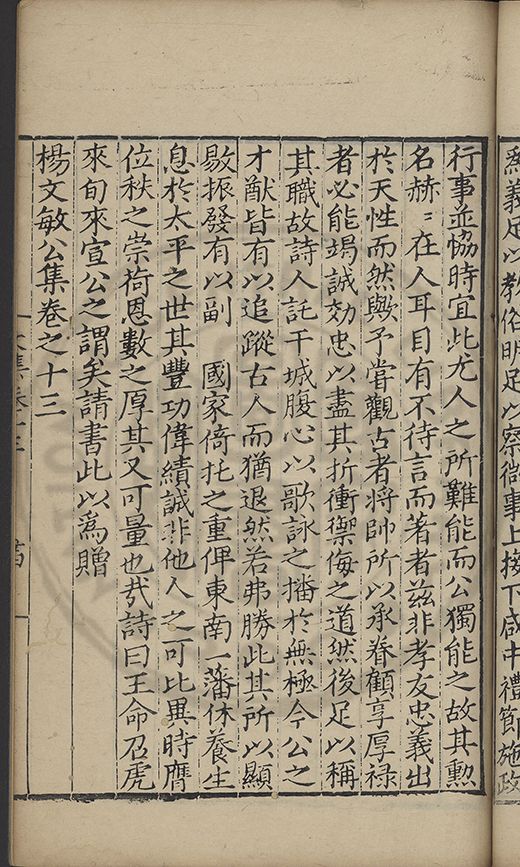 爲義足以教俗明足以察微事上接下咸中禮節施政
行事並恊時宜此尤人之所難能而公獨能之故其勳
名赫〻在人耳目有不待言而著者兹非孝友忠義出
於天性而然歟予嘗觀古者將帥所以承眷顧享厚禄
者必能竭誠効忠以盡其折衝禦侮之道然後足以稱
其職故詩人託干城腹心以歌詠之播於無極今公之
才猷皆有以追蹤古人而猶退然若弗勝此其所以顯
敭振發有以副　國家倚托之重俾東南一藩休養生
息於太平之世其豐功偉績誠非他人之可比異時膺
位秩之崇荷恩數之厚其又可量也㢤詩曰王命召虎
來旬來宣公之謂矣請書此以爲贈
楊文敏公集卷之十三